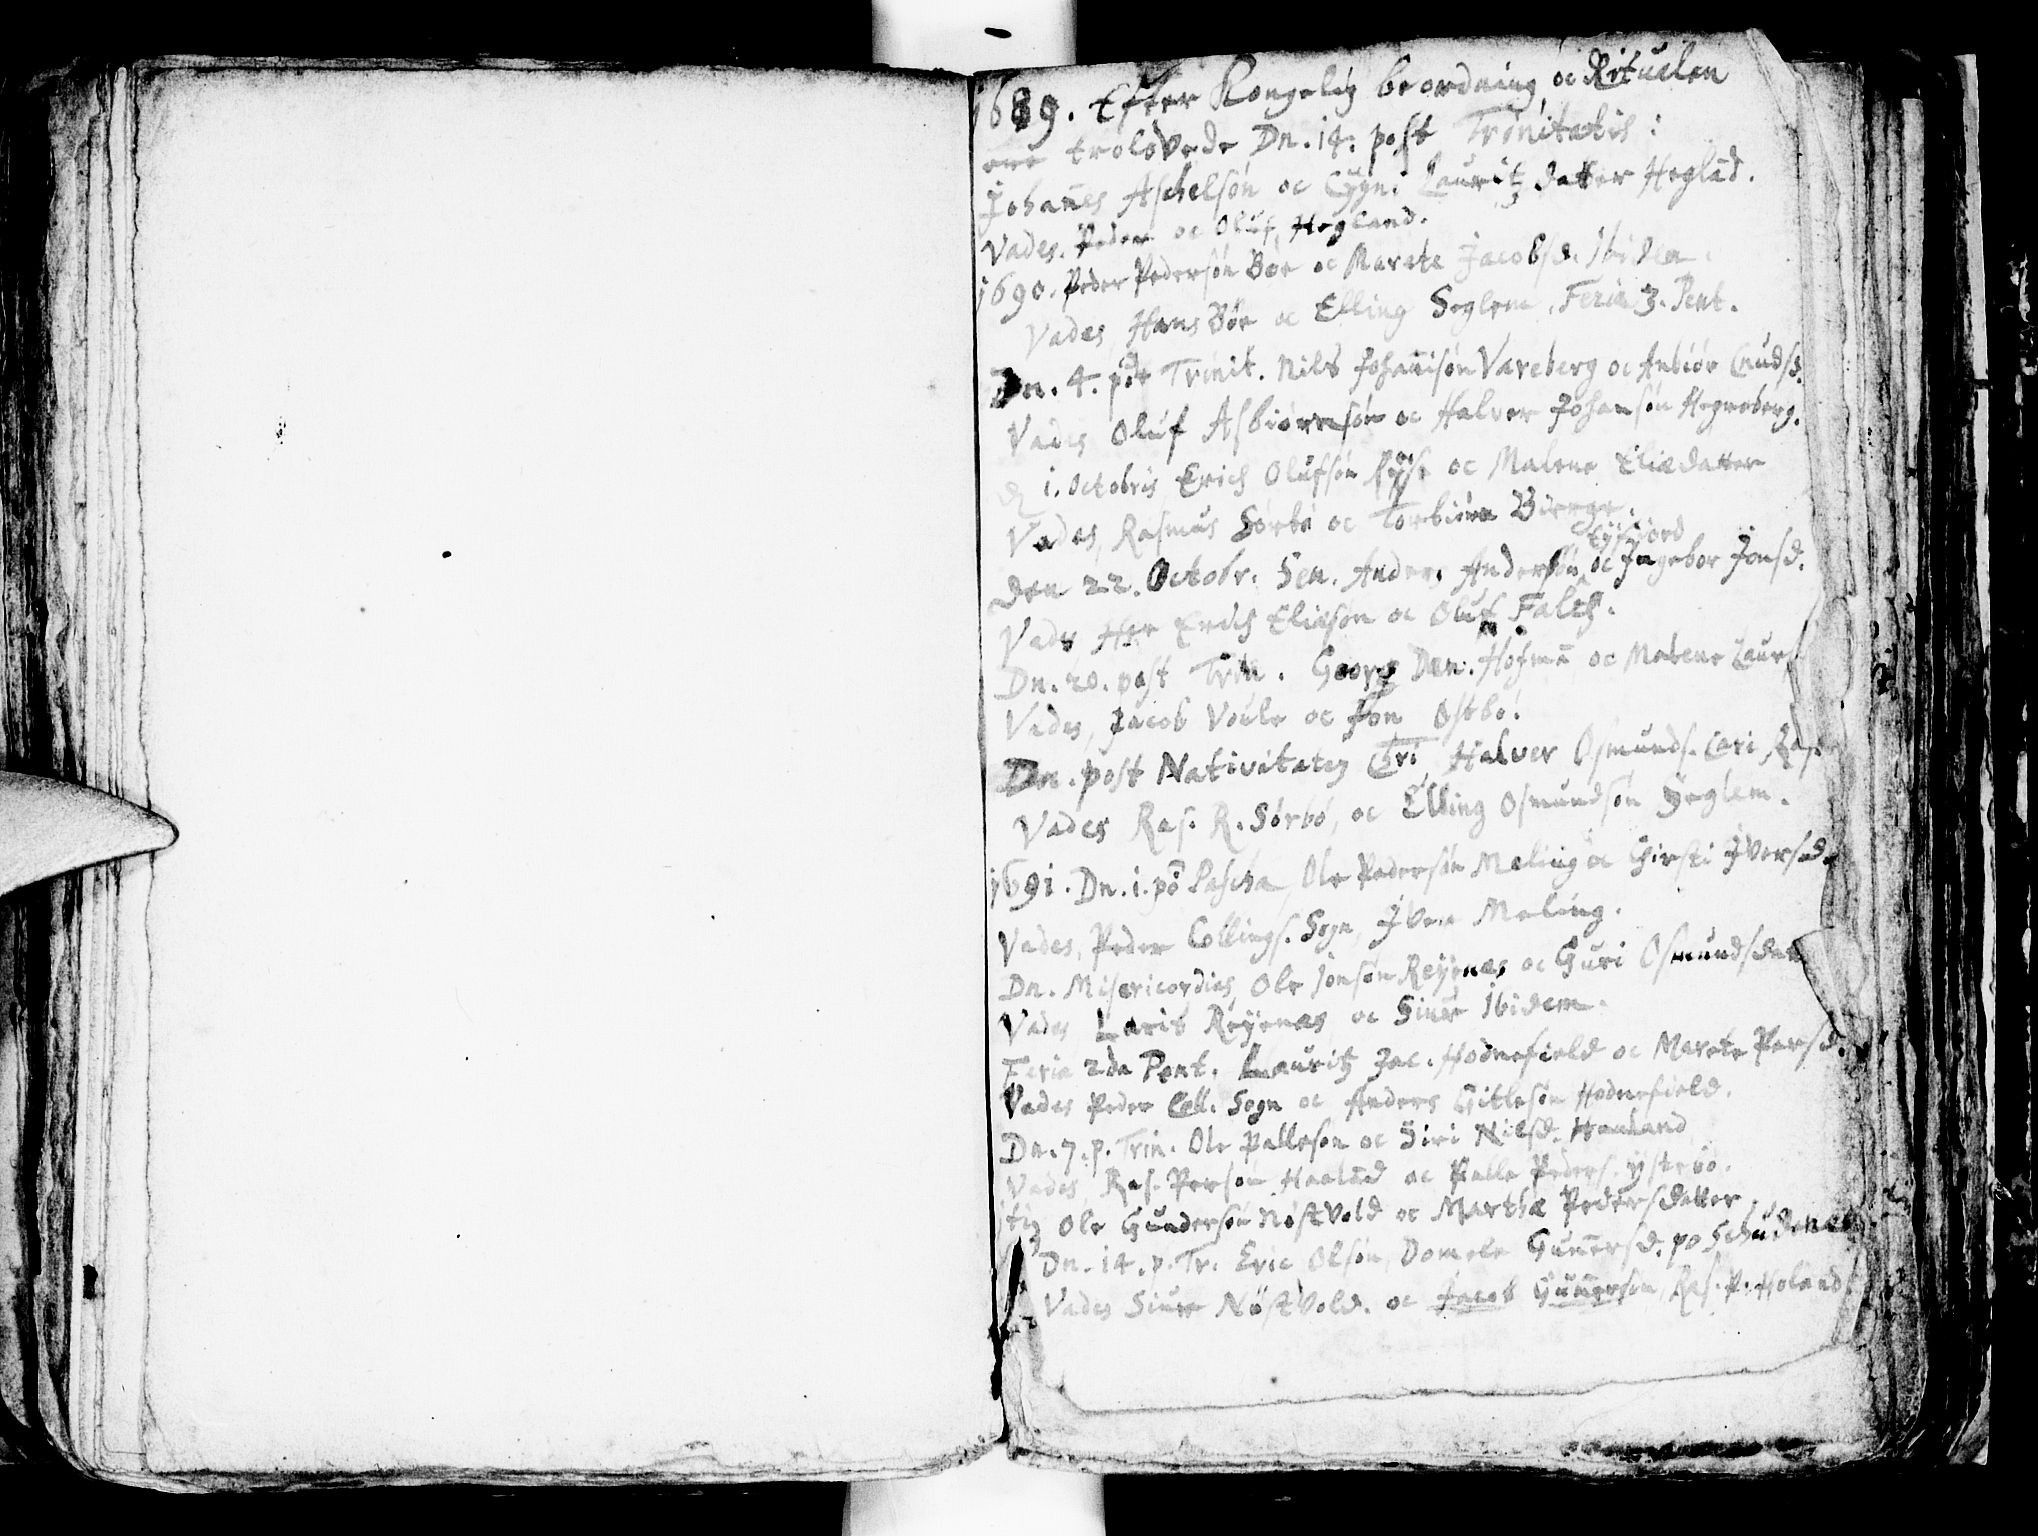 1689. Efter Kongelig beordning oc Ritualen
ere trolovede Dn. 14. post Trinitatis:
Johañes Aschelsøn oc Sygni Lauritz datter Heglãd.
Vades. Peder oc Oluf Hegland.
1690. Peder Pedersøn Bøe oc Marete Jacobsd. Ibidem.
Vades, Hans Bøe oc Elling Seglem, Feria 3. Pent.
Dn. 4. post Trinit. Nils Johañisøn Vareberg oc Anbiør Cnudsd.
Vades Oluf Asbiørnsøn oc Halvor Johansøn Hegreberg.
d. 1. Octobris Erich Olufsøn oc Malene Eliædatter
Vades, Rasmus Sørbø oc Torbiørn
den 22. Octobr. Sen. Ander. Andersøn Tysfiord oc Ingebor Jonsd.
Vades Her Erich Eliæsøn oc Oluf Falch.
Dn. 20. post Trin. Georg Dan. Hofmã oc Malene Laurs
Vades, Jacob Voule oc Jon Østbø.
Dn. post Nativitatem Chri Halver Osmunds. Cari Ras.
Vades Ras. R. Sørbø, oc Elling Osmundsøn Seglem.
1691. Dn. 1. po Pascha, Ole Pedersøn Meling oc Girsti Iversd.
Vades, Peder Collings. Sogn, Iver Meling.
Dn. Misericordias, Ole Jonsøn Reyenæs oc Guri Osmundsdatt
Vades Larits Reyenæs oc Siur Ibidem.
Feria 2da Pent. Lauritz Jac. Hodnefield oc Marete Persd.
Vades Peder Coll. Sogn oc Anders Gitlesøn Hodnefield.
Dn. 7. p. Trin. Ole Pallesøn oc Siri Nilsd. Haaland
Vades, Ras. Persøn Haalãd oc Palle Peders. Ystebø.
Ole Gundersøn Nøstvold oc Martha Pedersdatter
Dn. 14. p. Tr. Eric Olsøn, Domele Guñersd. po Schudenæs
Vades Siur Nøstvold. oc Jacob Guñersøn, Ras. P. Holand